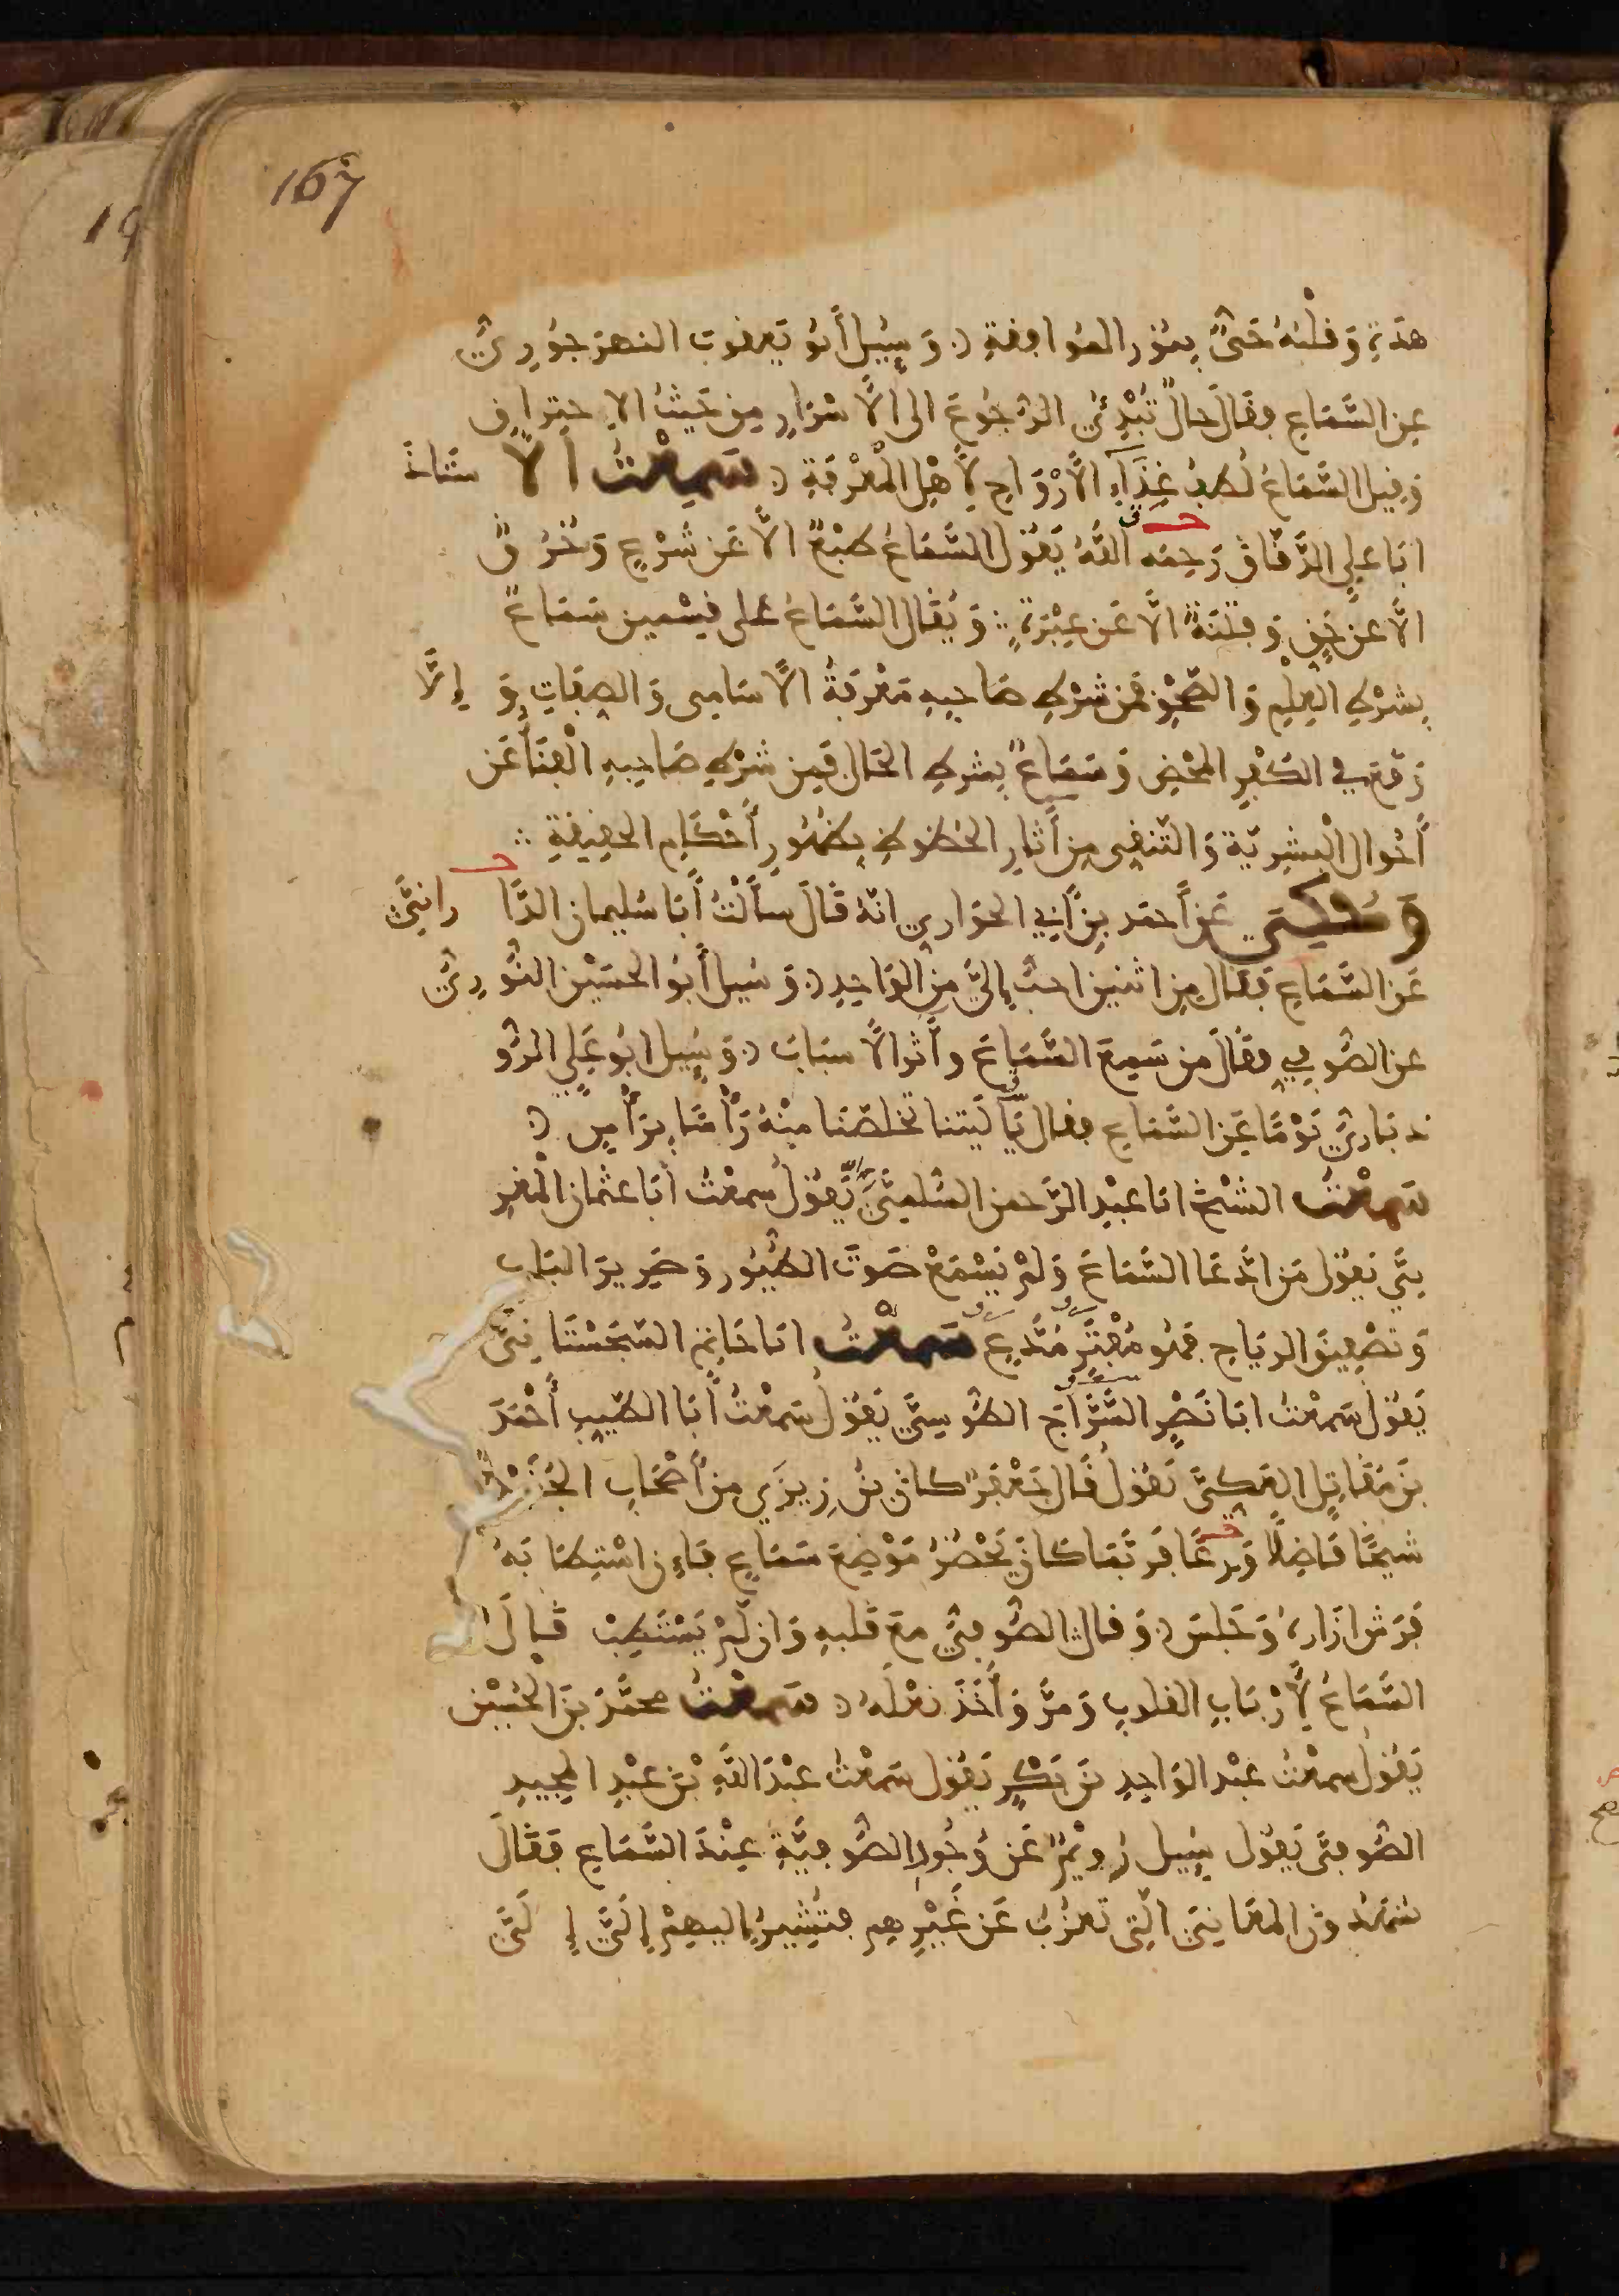 167
هدة وقلبه حيٌّ بنور الموافقة وسيل أبو يعقوب النهرجوريّ
عن السَّماع فقال حال تُبْدِئ الرجوع الى الأسرار من حيث الاحتراق
وقيل السَّماع لطف غذاء الأرواح لأهل المعرفة سَمِعْتُ الأستاذ
ابا علي الدقّاق رحمه الله يقول السَّماع طبعٌ الّا عن شرعٍ وخرقٌ
الّا عن حقٍ وفتنةٌ الّا عن عبرةٍ ويقال السَّماع على قسمين سماعٌ
بشرط العلم والصّحو فمن شرط صاحبه معرفة الأسامى والصفات وإلّا
وقع في الكفر المحض وسماعٌ بشرط الحال فمن شرط صاحبه الفناء عن
أحوال البشرية والتنقي من أثار الحظوظ بظهور أحكام الحقيقة
وَحُكِيَ عن أحمد بن أبي الحواري انه قال سألتُ أبا سليمان الدّارانيّ
عن السَّماع فقال من اثنين احبّ إليّ من الواحد وسيل أبو الحسين النّوريّ
عن الصّوفي فقال من سمع السَّماع وأثر الأسباب وسيل ابو علي الرّو
ذباريّ يومًا عن السَّماع فقال يا ليتنا تخلصنا منه رأسًا برأسٍ
سَمِعْتُ الشيخ ابا عبد الرّحمن السّلميّ يقول سمعت أبا عثمان المغر
بيّ يقول من ادّعا السَّماع ولم يسمع صوت الطّيور وصرير الباب
وتصفيق الرياح فهو مفترٍ مُدّعٍ سَمِعْتُ ابا حاتم السّجستانيّ
يقول سمعت ابا نصر السّرّاج الطّوسيّ يقول سمعت أبا الطّيب أحمد
بن مقاتل العكيّ يقول قال جعفر كان بن زيزي من أصحاب الجنيد
شيخًا فاضلًا ورعًا فربّما كان يحضر موضع سماع فإن استطابه
فرش ازاره وجلس وقال الصّوفيّ مع قلبه وان لم يستطب قال
السَّماع لأرباب القلوب ومرّ وأخذ نعله سَمِعْتُ محمّد بن الحسين
يقول سمعت عبد الواحد بن بكرٍ يقول سمعت عبد الله بن عبد المجيد
الصّوفيّ يقول سيل رويم عن وجود الصّوفيّة عند السَّماع فقال
يشهدون المعاني الّتي تعزب عن غيرهم فتشير إليهم إليّ إليّ